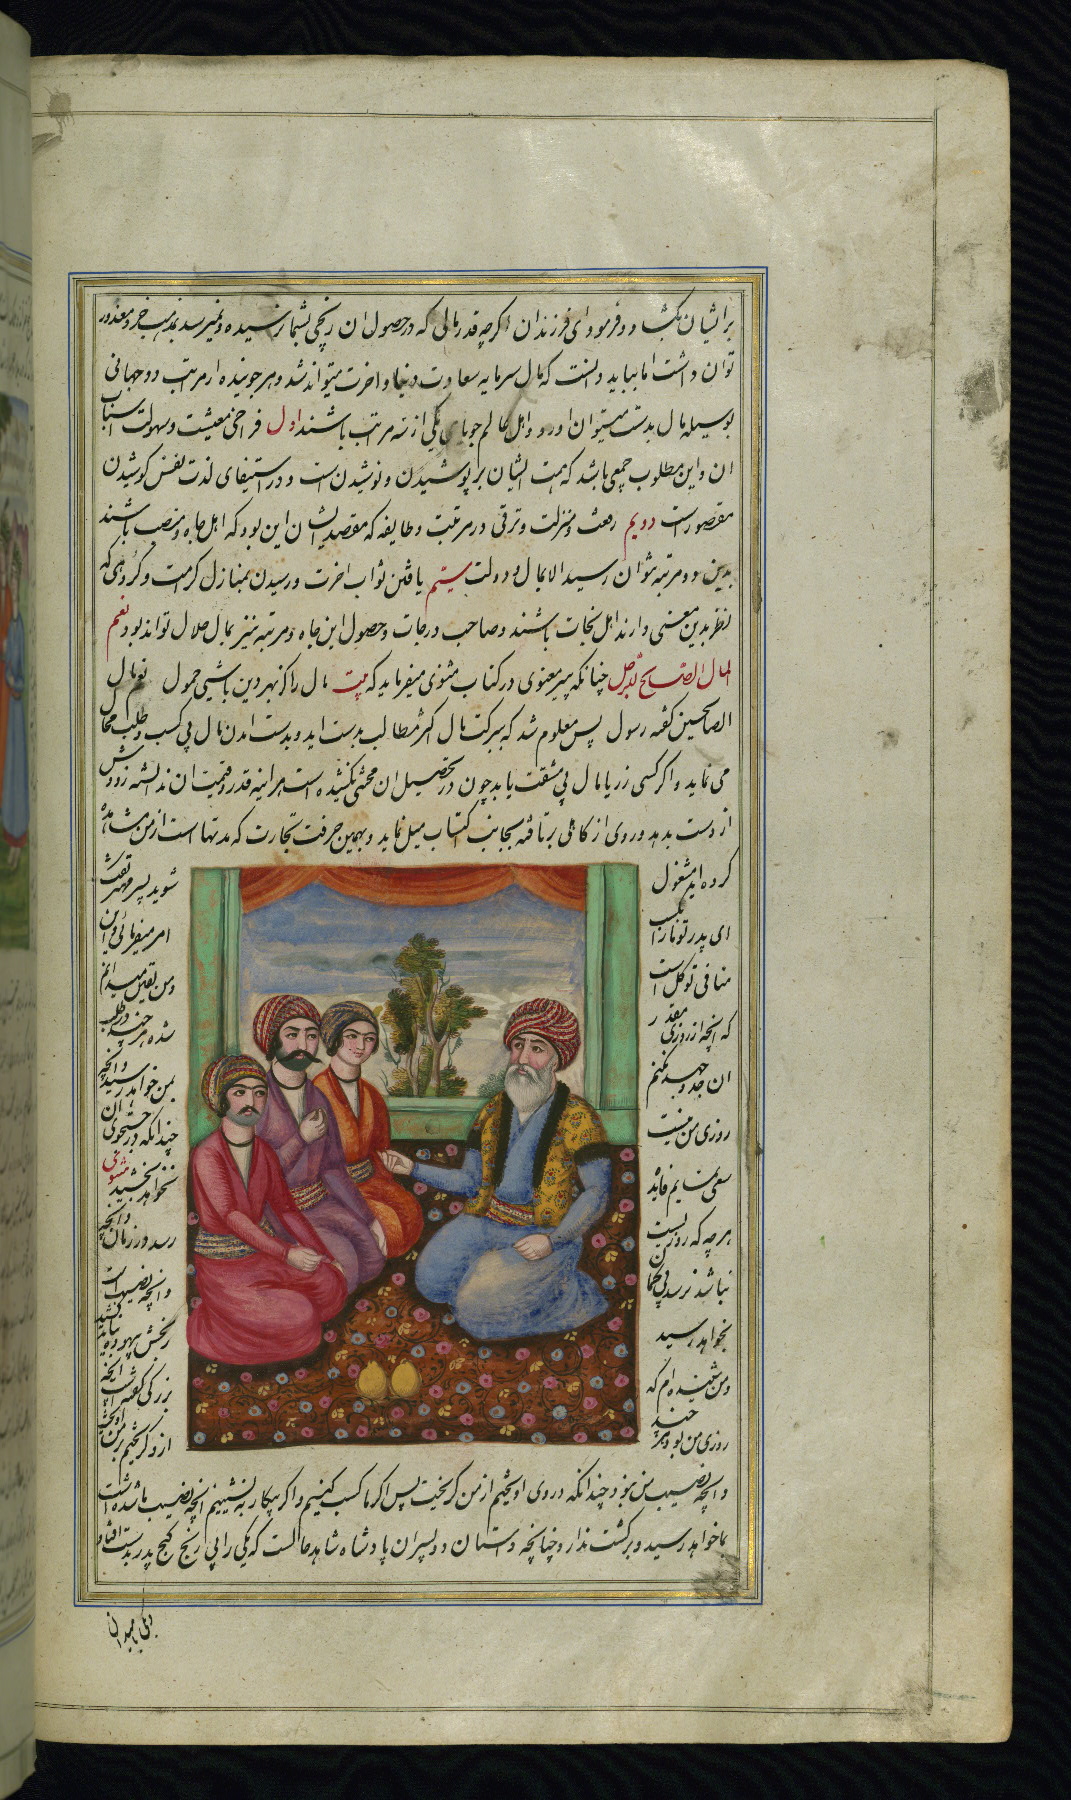 بر ایشان بگشاد و فرمود ای فرزندان اگرچه قدر مالی که در حصول ان رنجی بشما نرسیده و نمیرسد بمذهب خرد معذور
توان داشت اما بباید دانست که مال سرمایه سعادت دنیا و اخرت میتواند شد و هر جوینده از مراتب دو جهانی
بوسیله مال بدست میتوان اورد و اهل عالم جویای یکی از سه مراتب باشند اول فراخی معیشت و سهولت اسباب
ان و این مطلوب جمعی باشد که همت ایشان بر پوشیدن و نوشیدن است و در استیفای لذت نفس کوشیدن
مقصور است دویم رفعت و منزلت و ترقی در مرتبت و طایفه که مقصد ایشان این بود که اهل جاه و منصب باشند
بدین دو مرتبه نتوان رسید الا بمال و دولت سیم یافتن ثواب اخرت و رسیدن بمنازل کرامت و گروهی که
نظر بدین معنی دارند اهل نجات باشند و صاحب درجات و حصول این جاه و مرتبه نیز بمال حلال تواند بود نعم
المال الصالح للرجل چنانکه پیر معنوی در کتاب مثنوی میفرماید که بیت مال را کز بهر دین باشی حمول نعم مال
الصالحین گفته رسول پس معلوم شد که ببرکت مال اکثر مطالب بدست اید و بدست امدن مال بی کسب و طلب محال
می نماید و اگر کسی زر یا مال بی مشقت یابد چون در تحصیل ان محنتی نکشیده است هراینه قدر و قیمت ان ندانسته زودش
از دست بدهد و روی از کاهلی برتافته بجانب اکتساب میل نماید و بهمین حرفت تجارت که مدتهاست از من مشاهده
کرده اید مشغول شوید پسر مهتر گفت
ای پدر تو ما را بکسب امر میفرمائی و این
منافی توکل است و من یقین میدانم
که انچه از روزی مقدر شده هر چند در طلب
ان جد و جهد نکنم بمن خواهد رسید و انچه
روزی من نیست چندانکه در جستجوی ان
سعی نمایم فایده نخواهد بخشید مثنوی
هر چه که روزیست رسد در زمان و انچه
نباشد نرسد بی گمان و انچه نصیب است
بخواهد رسید رنجش بیهوده نباید کشید
و من شنیده ام که بزرگی گفته است انچه
روزی من بود هر چند از و گریختم در من اویخت
و انچه نصیب من نبود چندانکه در وی اویختم از من گریخت پس اگر ما کسب کنیم و اگر بیکار بنشینیم انچه نصیب ما شده است
بما خواهد رسید و برگشت ندارد چنانچه داستان دو پسران پادشاه شاهد حالست که یکی را بی رنج گنج پدر بدست افتاد